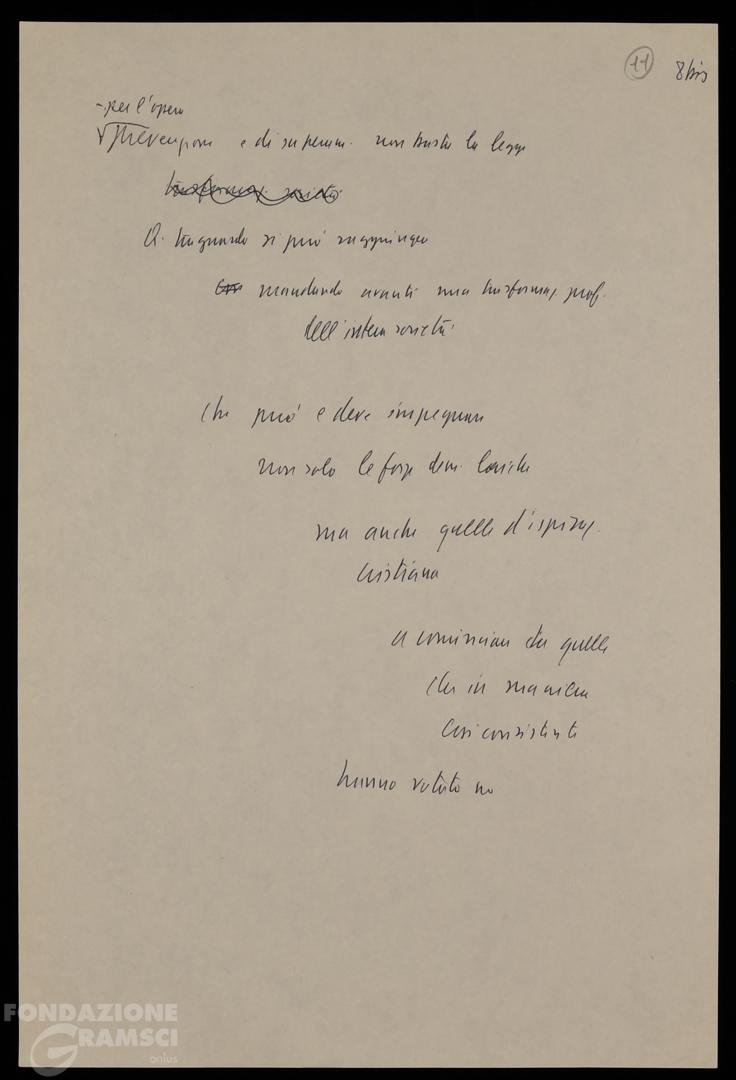 11 8bis
- per l'opera
prevenzione e di superam. non basta la legge
trasformaz. società
Q. traguardo si può raggiungere
con mandando avanti una trasformaz. prof.
dell'intera società
che può e deve impegnare
non solo le forze dem. laiche
ma anche quelle d'ispiraz.
cristiana
a cominciare da quelle
che in maniera
così consistente
hanno votato no
FONDAZIONE
GRAMSCI
onlus